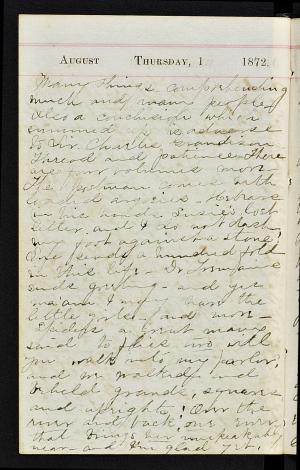 August Thursday, 1 1872.
Many things comprehending
much and many people,
Also a conclusion which
summed up is adverse
to Sir Charles Grandison.
Thread and patience. There
are four volumes more.
The Postman comes with
in his hands Susie's lost
letter, and I do not dash
my foot against a stone!
One sends a hundred fold
in this life -
ends greeting - and yes
ma'am I may have the
little girls - and
said to flies
you walk into my parlor,
and we walked and
behold grands, squares
and uprights! Over the
river and back, our
that brings her unspeakably
near - and I'm glad